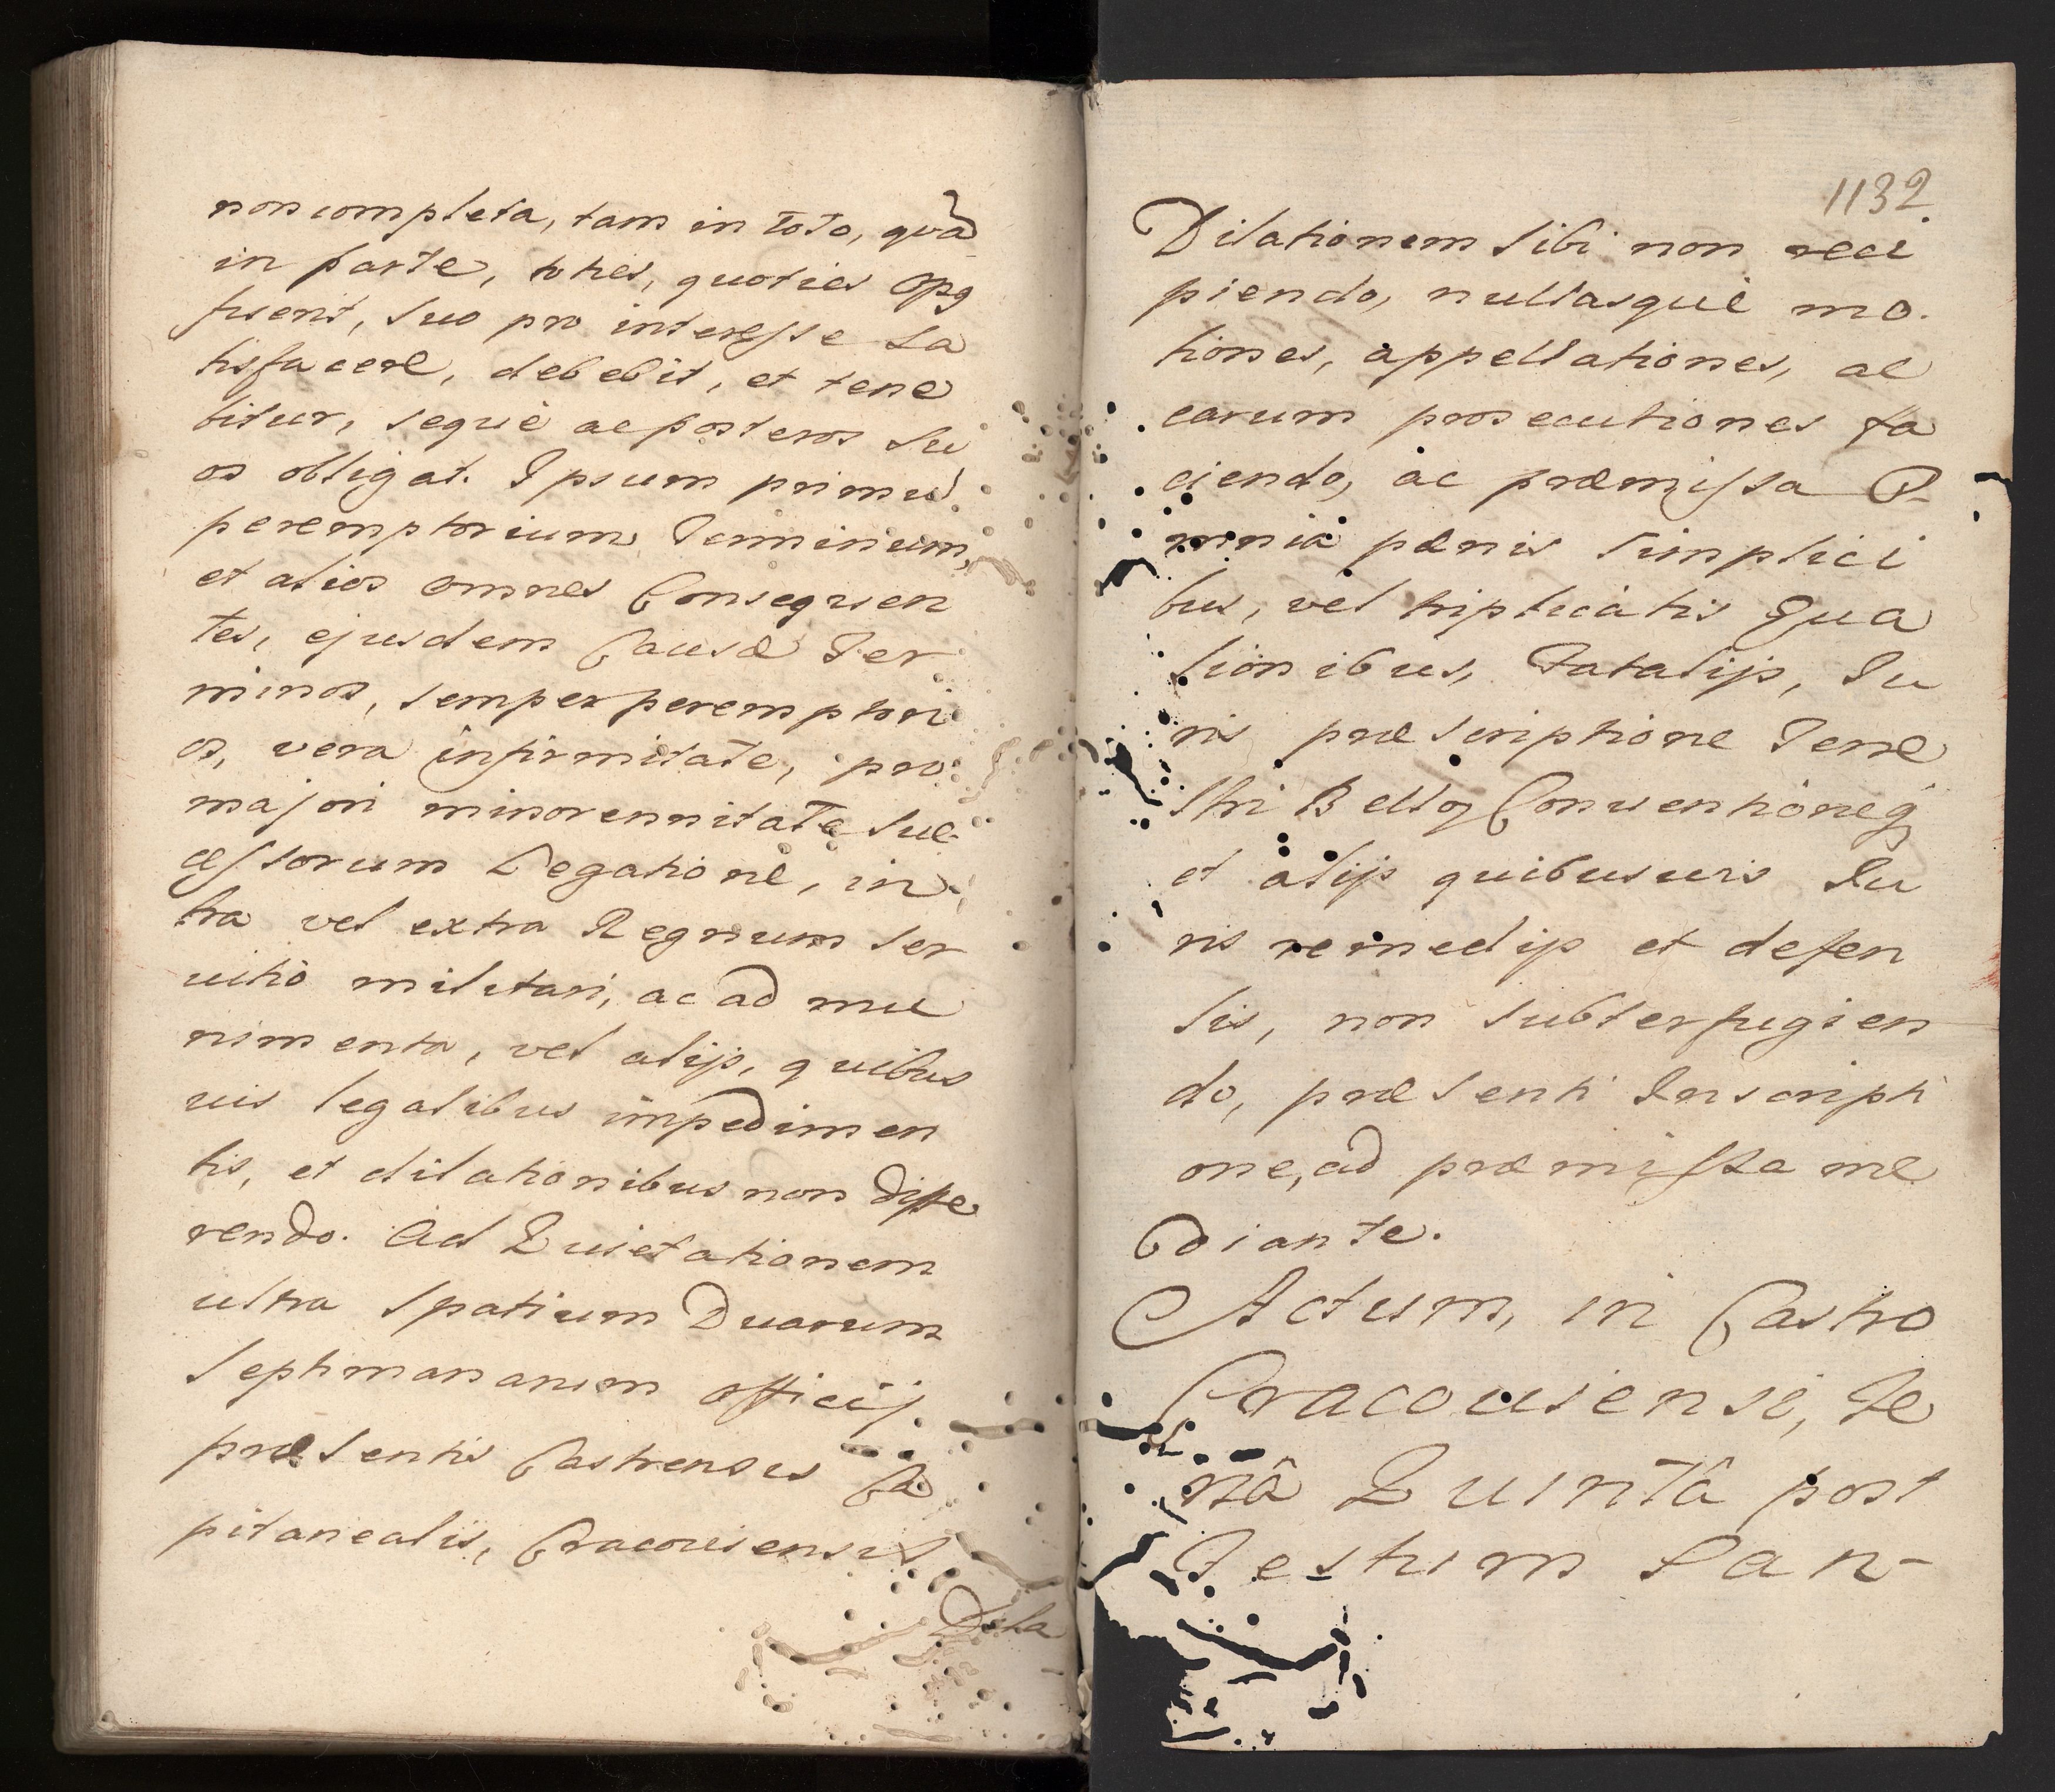 non completa, tam in toto, quā
in parte, toties, quoties opq
fuerit, suo pro interesse sa
tisfacere, debebit, et tene
bitur, seque ac posteros su
os obligat. Ipsum primū
peremptorium Terminum,
et alios omnes Consequen
tes, ejusdem Causæ Ter
minos, semper peremptori
os, vera infirmitate, pro
majori minorennitate suc
cessorum Legatione, in
tra vel extra Regnum ser
uitio militari, ac ad mu
nimenta, vel alijs, quibus
uis legalibus impedimen
tis, et dilationibus non diffe
rendo. Ad Quietationem
ultra Spatium Duarum
Septimanarum officij
præsentis Castrensis Ca
pitanealis, Cracouiensis
Dila
1132
Dilationem sibi non reci
piendo, nullasque mo
tiones, appellationes, ac
earum prosecutiones fa
ciendo, ac præmissa O
mnia pænis simplici
bus, vel triplicatis qua
lionibus, Fatalijs, Iu
ris præscriptione Terre
stri Bello Conuentioneq
et alijs quibusuis Iu
ris remedijs et defen
sis, non subterfugien
do, præsenti Inscripti
one, ad præmissa me
diante.
Actum, in Castro
Cracouiensi, Fe
riâ Quintâ post
Festum San-